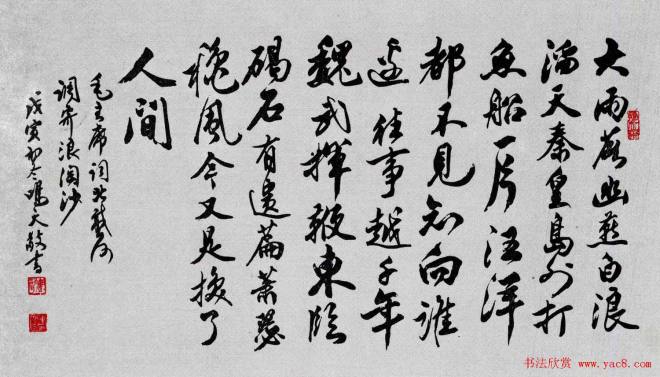 大雨落幽燕白浪
滔天秦皇岛外打
鱼船一片汪洋
都不见知向谁
边往事越千年
魏武挥鞭东临
碣石有遗篇萧瑟
秋风今又是换了
人间
毛主席词北戴河
调寄浪淘沙
戊寅初冬鸣天敬书
书法欣赏 www.yac8.com